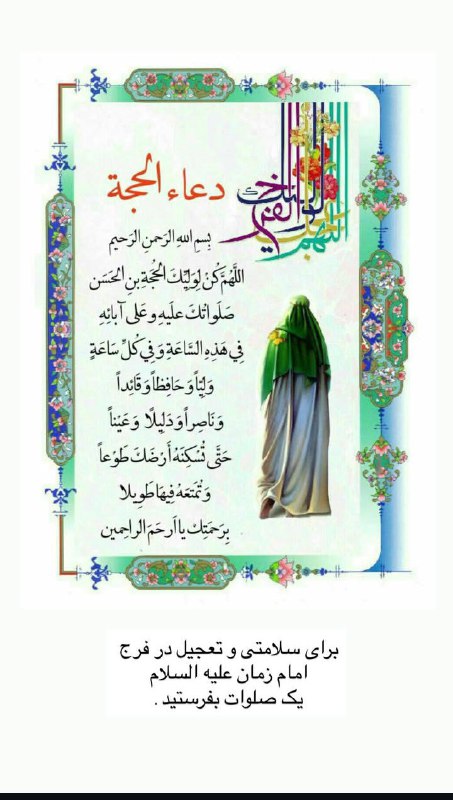 دعاء الحجة
اللهم عجل لولیک الفرج
بِسمِ اللهِ الرَحمنِ الرَحیم
اللَّهُمَّ كُنْ لِوَلِيِّكَ الْحُجَّةِ بنِ الحَسَن
صَلَواتُكَ علَيهِ و عَلى آبائِهِ
فِي هَذِهِ السَّاعَةِ وَ فِي كُلِّ سَاعَةٍ
وَلِيّاً وَ حَافِظاً وَ قَائِداً
وَ نَاصِراً وَ دَلِيلًا وَ عَيْناً
حَتَّى تُسْكِنَهُ أَرْضَكَ طَوْعاً
وَ تُمَتِّعَهُ فِيهَا طَوِيلا
بِرَحمَتِكَ يا أرحَمَ الراحِمين
برای سلامتی و تعجیل در فرج
امام زمان علیه السلام
یک صلوات بفرستید .